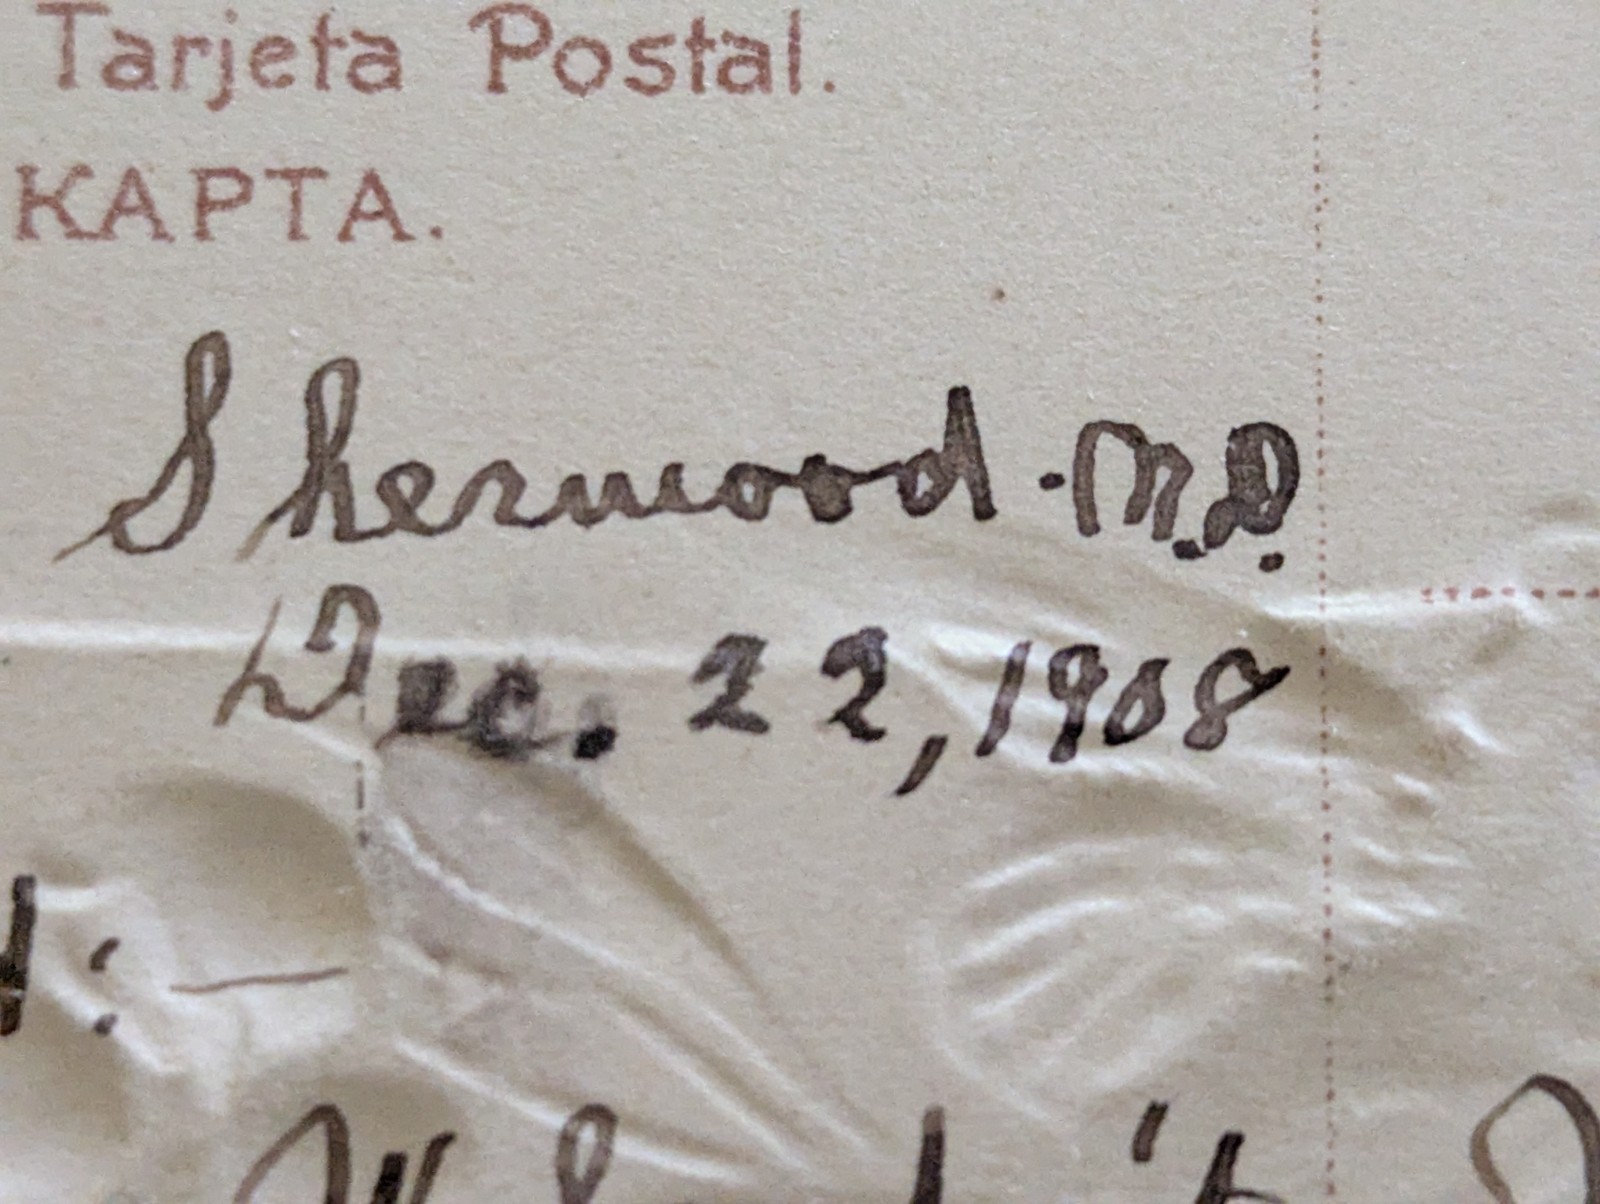 Tarjeta Postal.
КАРТА.
Sherwood. N.D.
Dec. 22, 1908